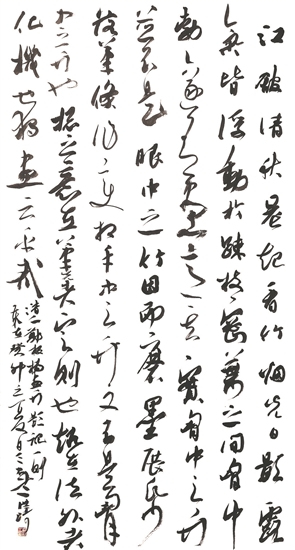 江館清秋晨起看竹烟光日影露
氣皆浮動於疎枝密葉之间胸中
勃勃遂有畫意其實胸中之竹
並不是眼中之竹因而磨墨展紙
落筆倏作变相手中之竹又不是胸
中之竹也總之意在筆先者定则也趣在法外者
化機也獨畫云乎哉
清鄭板橋畫竹題記一則
歲在癸卯之夏月